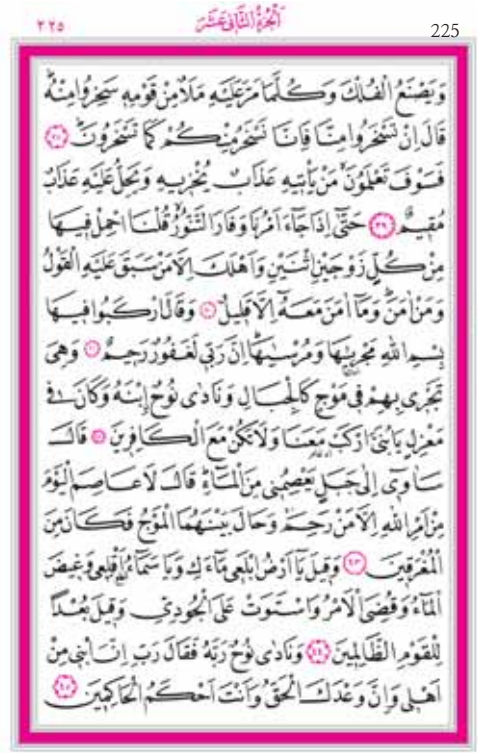 ٢٢٥
اَلْجُزْءُ الثَّانِى عَشَرَ
225
وَيَصْنَعُ الْفُلْكَ وَكُلَّمَا مَرَّ عَلَيْهِ مَلَاٌ مِنْ قَوْمِهِ سَخِرُوا مِنْهُۜ
قَالَ اِنْ تَسْخَرُوا مِنَّا فَاِنَّا نَسْخَرُ مِنْكُمْ كَمَا تَسْخَرُونَۜ ﴿٣٨﴾
فَسَوْفَ تَعْلَمُونَۙ مَنْ يَأْتِيهِ عَذَابٌ يُخْزِيهِ وَيَحِلُّ عَلَيْهِ عَذَابٌ
مُقِيمٌ ﴿٣٩﴾ حَتّٰٓى اِذَا جَٓاءَ اَمْرُنَا وَفَارَ التَّنُّورُۙ قُلْنَا احْمِلْ فِيهَا
مِنْ كُلٍّ زَوْجَيْنِ اثْنَيْنِ وَاَهْلَكَ اِلَّا مَنْ سَبَقَ عَلَيْهِ الْقَوْلُ
وَمَنْ اٰمَنَۜ وَمَٓا اٰمَنَ مَعَهُٓ اِلَّا قَلِيلٌ ﴿٤٠﴾ وَقَالَ ارْكَبُوا فِيهَا
بِسْمِ اللّٰهِ مَجْرٰۭۙيهَا وَمُرْسٰيهَاۜ اِنَّ رَبِّى لَغَفُورٌ رَحِيمٌ ﴿٤١﴾ وَهِىَ
تَجْرِى بِهِمْ فِى مَوْجٍ كَالْجِبَالِ وَنَادٰى نُوحٌ اِبْنَهُ وَكَانَ فِى
مَعْزِلٍ يَا بُنَىَّ ارْكَبْ مَعَنَا وَلَا تَكُنْ مَعَ الْكَافِرِينَ ﴿٤٢﴾ قَالَ
سَاٰوِٓى اِلٰى جَبَلٍ يَعْصِمُنِى مِنَ الْمَٓاءِۜ قَالَ لَا عَاصِمَ الْيَوْمَ
مِنْ اَمْرِ اللّٰهِ اِلَّا مَنْ رَحِمَۚ وَحَالَ بَيْنَهُمَا الْمَوْجُ فَكَانَ مِنَ
الْمُغْرَقِينَ ﴿٤٣﴾ وَقِيلَ يَٓا اَرْضُ ابْلَعِى مَٓاءَكِ وَيَا سَمَٓاءُ اَقْلِعِى وَغِيضَ
الْمَٓاءُ وَقُضِىَ الْاَمْرُ وَاسْتَوَتْ عَلَى الْجُودِىِّ وَقِيلَ بُعْدًا
لِلْقَوْمِ الظَّالِمِينَ ﴿٤٤﴾ وَنَادٰى نُوحٌ رَبَّهُ فَقَالَ رَبِّ اِنَّ ابْنِى مِنْ
اَهْلِى وَاِنَّ وَعْدَكَ الْحَقُّ وَاَنْتَ اَحْكَمُ الْحَاكِمِينَ ﴿٤٥﴾